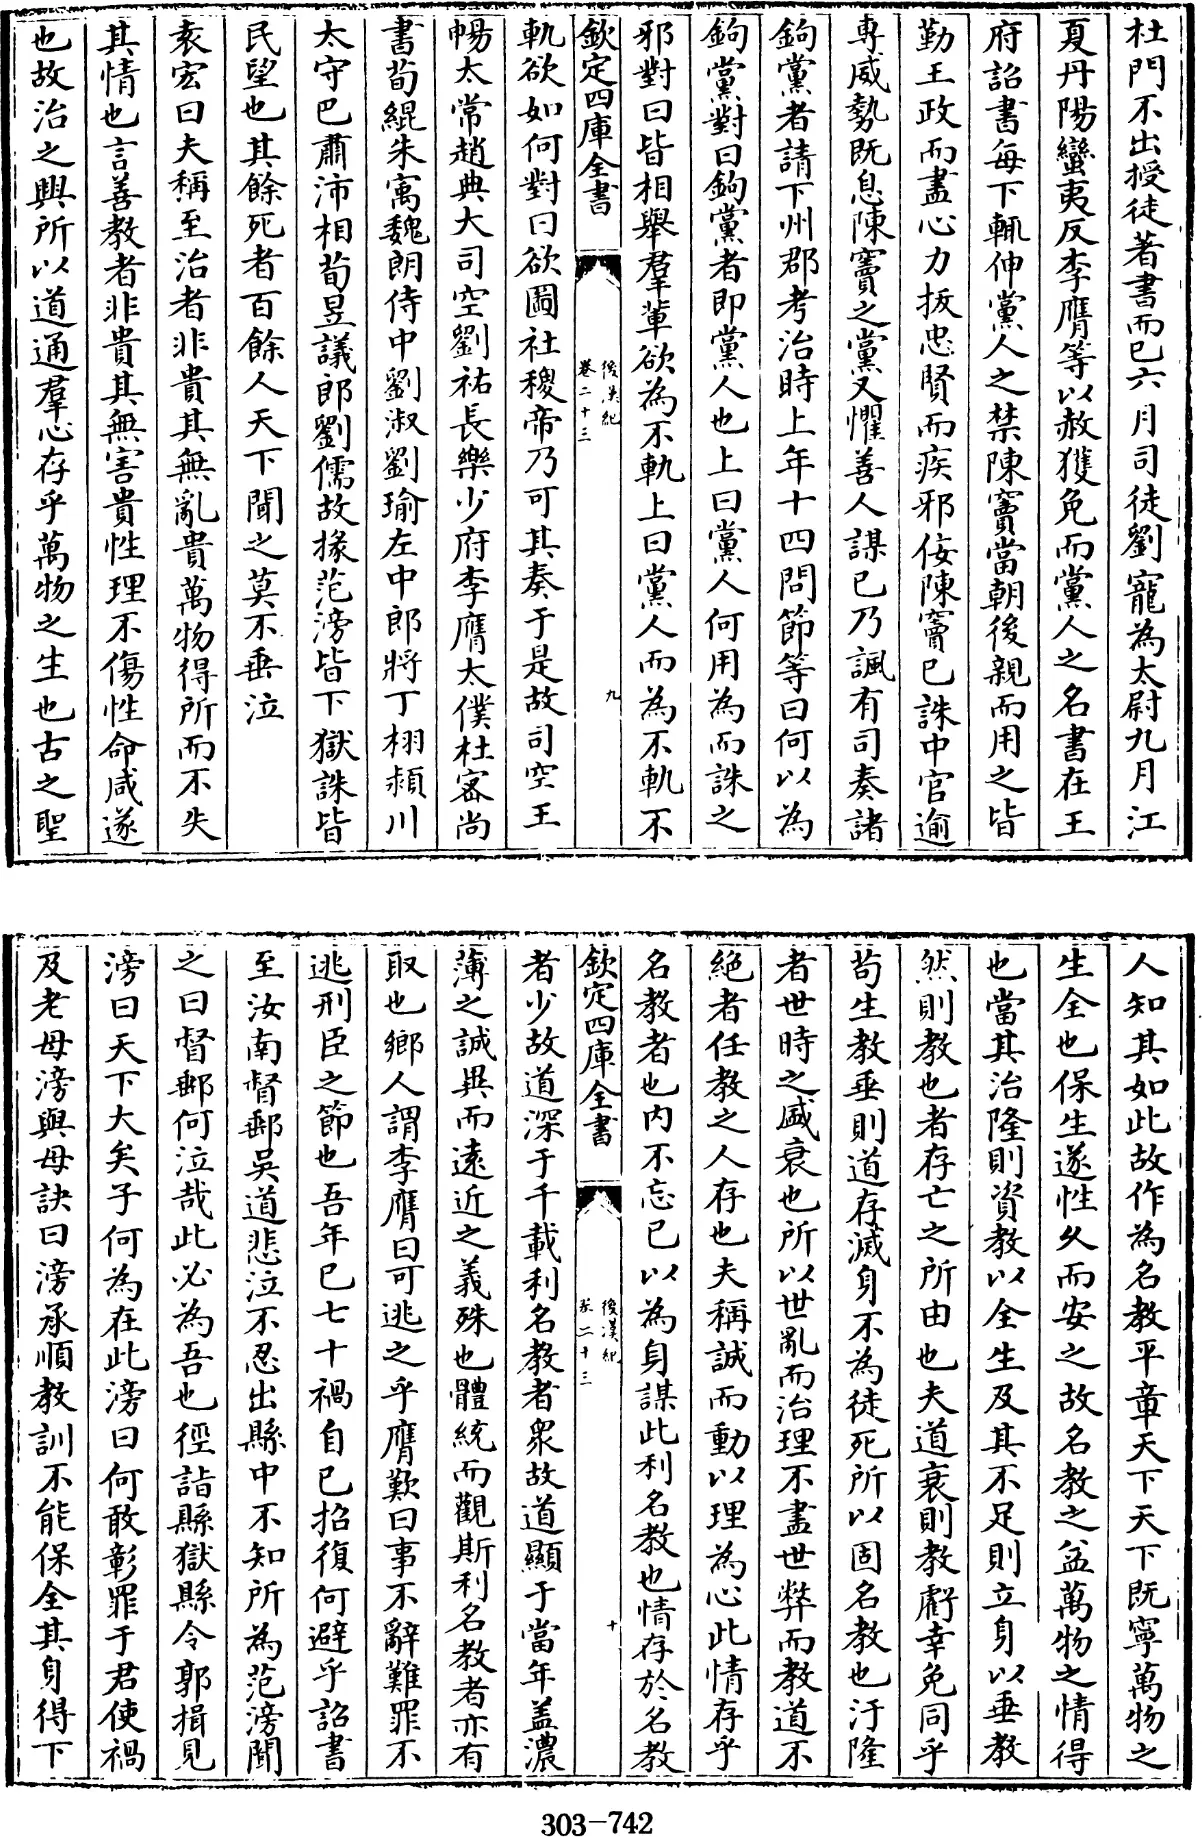 杜門不出授徒著書而已六月司徒劉寵為太尉九月江
夏丹陽蠻夷反李膺等以赦獲免而黨人之名書在王
府詔書每下輒伸黨人之禁陳竇當朝後親而用之皆
勤王政而盡心力拔忠賢而疾邪佞陳竇已誅中官逾
專威勢既息陳竇之黨又懼善人謀已乃諷有司奏諸
鉤黨者請下州郡考治時上年十四問節等曰何以為
鉤黨對曰鉤黨者即黨人也上曰黨人何用為而誅之
邪對曰皆相舉羣輩欲為不軌上曰黨人而為不軌不
欽定四庫全書
後漢紀
卷二十三
九
軌欲如何對曰欲圖社稷帝乃可其奏于是故司空王
暢太常趙典大司空劉祐長樂少府李膺太僕杜密尚
書荀緄朱寓魏朗侍中劉淑劉瑜左中郎將丁栩潁川
太守巴肅沛相荀昱議郎劉儒故掾范滂皆下獄誅皆
民望也其餘死者百餘人天下聞之莫不垂泣
袁宏曰夫稱至治者非貴其無亂貴萬物得所而不失
其情也言善教者非貴其無害貴性理不傷性命咸遂
也故治之興所以道通羣心存乎萬物之生也古之聖
人知其如此故作為名教平章天下天下既寧萬物之
生全也保生遂性久而安之故名教之益萬物之情得
也當其治隆則資教以全生及其不足則立身以垂教
然則教也者存亡之所由也夫道衰則教虧幸免同乎
苟生教垂則道存滅身不為徒死所以固名教也汙隆
者世時之盛衰也所以世亂而治理不盡世弊而教道不
絕者任教之人存也夫稱誠而動以理為心此情存乎
名教者也内不忘已以為身謀此利名教也情存於名教
欽定四庫全書
後漢紀
卷二十三
十
者少故道深于千載利名教者衆故道顯于當年盖濃
薄之誠異而遠近之義殊也體統而觀斯利名教者亦有
取也鄉人謂李膺曰可逃之乎膺歎曰事不辭難罪不
逃刑臣之節也吾年已七十禍自已招復何避乎詔書
至汝南督郵吳道悲泣不忍出縣中不知所為范滂聞
之曰督郵何泣哉此必為吾也徑詣縣獄縣令郭揖見
滂曰天下大矣子何為在此滂曰何敢彰罪于君使禍
及老母滂與母訣曰滂承順教訓不能保全其身得下
303-742